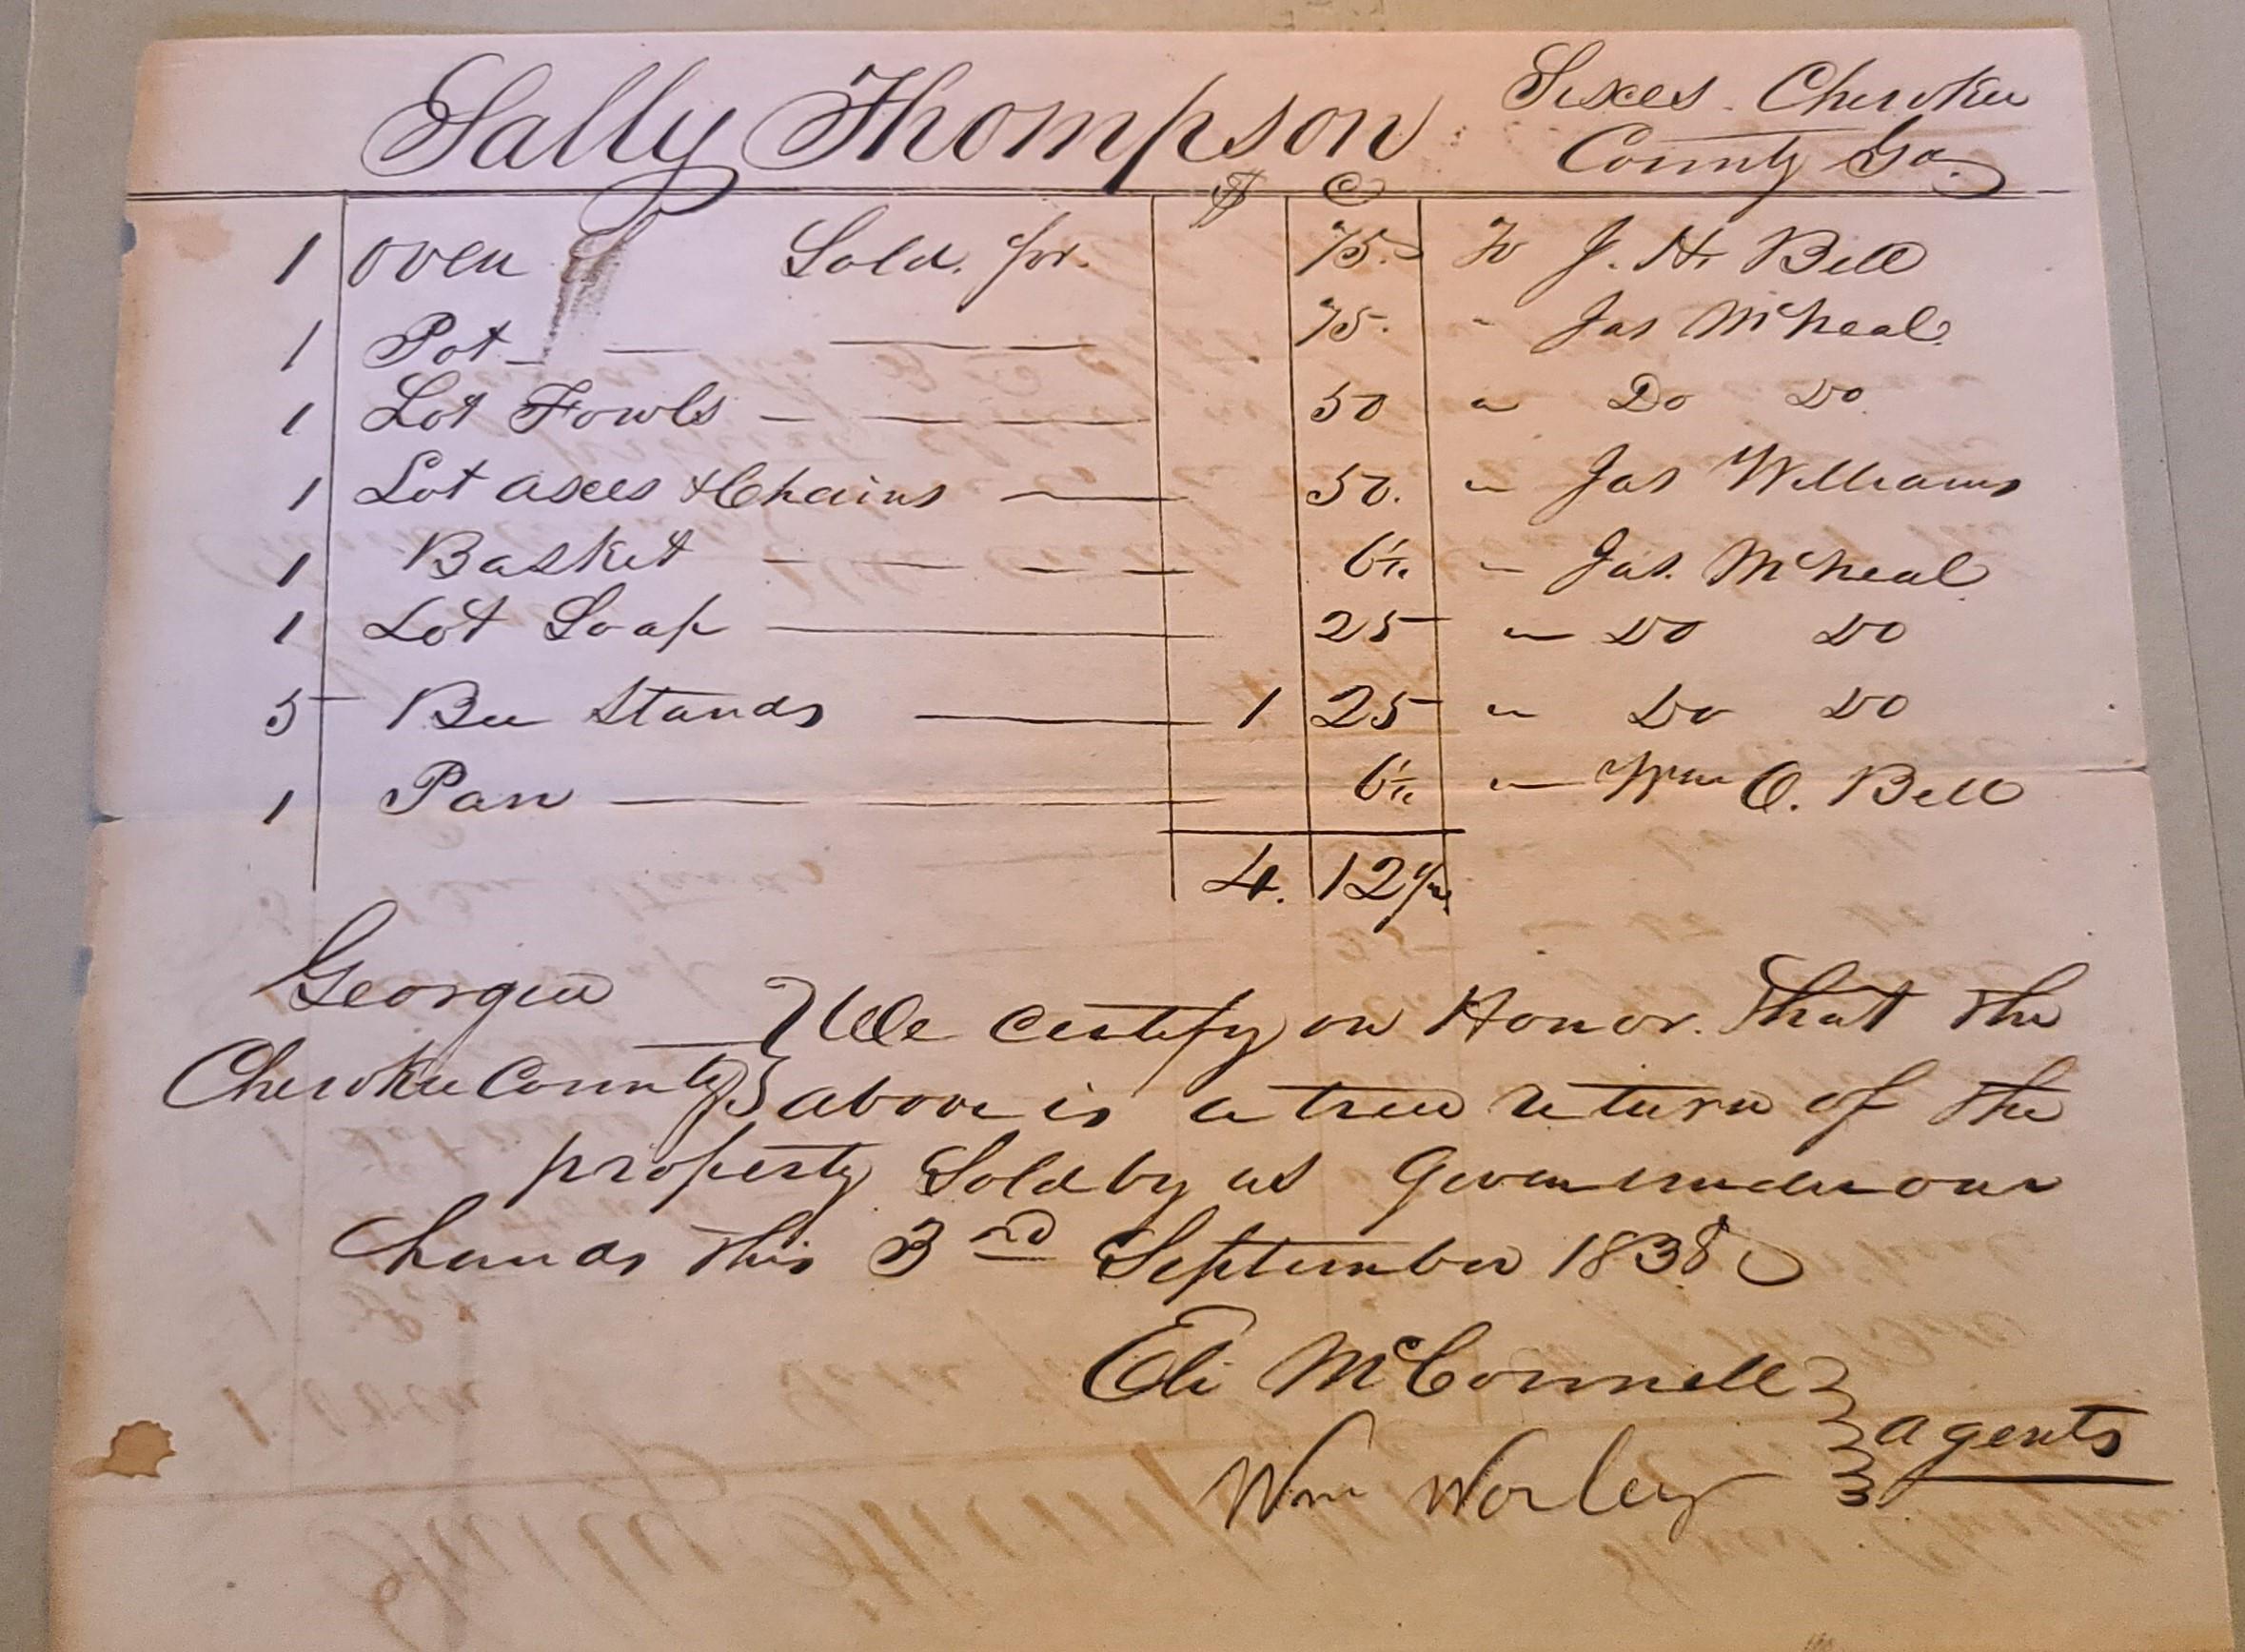 Sally Thompson Sixes Cherokee
County Ga.
$ C
1 oven Sold. for. 75. To J. H. Bell
1 Pot 75. " Jas McNeal
1 Lot Fowls 50 " Do Do
1 Lot axes & Chains 50. " Jas Williams
1 Basket 6¼ " Jas. McNeal
1 Lot Soap 25 " Do Do
5 Bee Stands 1 25 " Do Do
1 Pan 6¼ " Wm O. Bell
4. 12½
Georgia } We certify on Honor. That the
Cherokee County } above is a true return of the
property Sold by us Given under our
hands this 3rd September 1838
Eli McConnell }
Wm Worley } agents